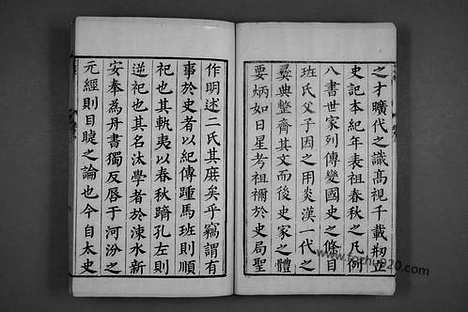 之才曠代之識高視千載刱立
史記本紀年表祖春秋之凡例
八書世家列傳變國史之條目
班氏父子因之用炎漢一代之
彝典整齊其文而後史家之體
要炳如日星考祖禰於史局聖
作明述二氏其庶矣乎竊謂有
事於史者以紀傳踵馬班則順
祀也其軌夷以春秋躋孔左則
逆祀也其名汰學者於涑水新
安奉為丹書獨反唇于河汾之
元經則目睫之論也今自太史